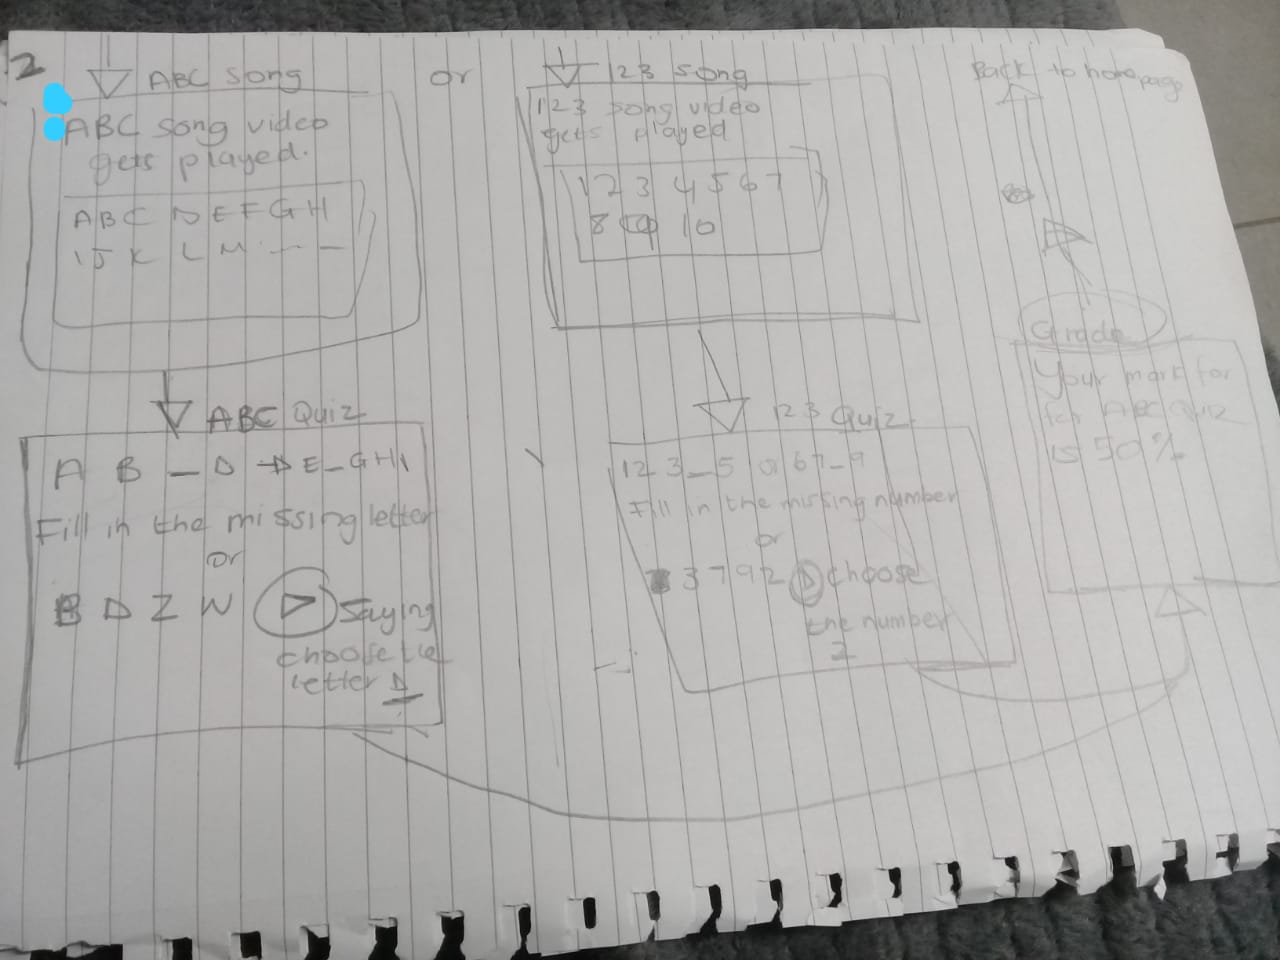 2
ABC song
ABC song video
gets played.
A B C D E F G H
I J K L M - - -
or
123 song
123 song video
gets played
1 2 3 4 5 6 7
8 9 10
Back to home page
ABC Quiz
A B _ D → E _ G H I
Fill in the missing letter
or
B D Z W ▷ Saying
choose the
letter D
123 Quiz
1 2 3 _ 5 or 6 7 _ 9
Fill in the missing number
or
3 7 9 2 ▷ choose
the number
2
Grade
Your mark for
for ABC Quiz
is 50%